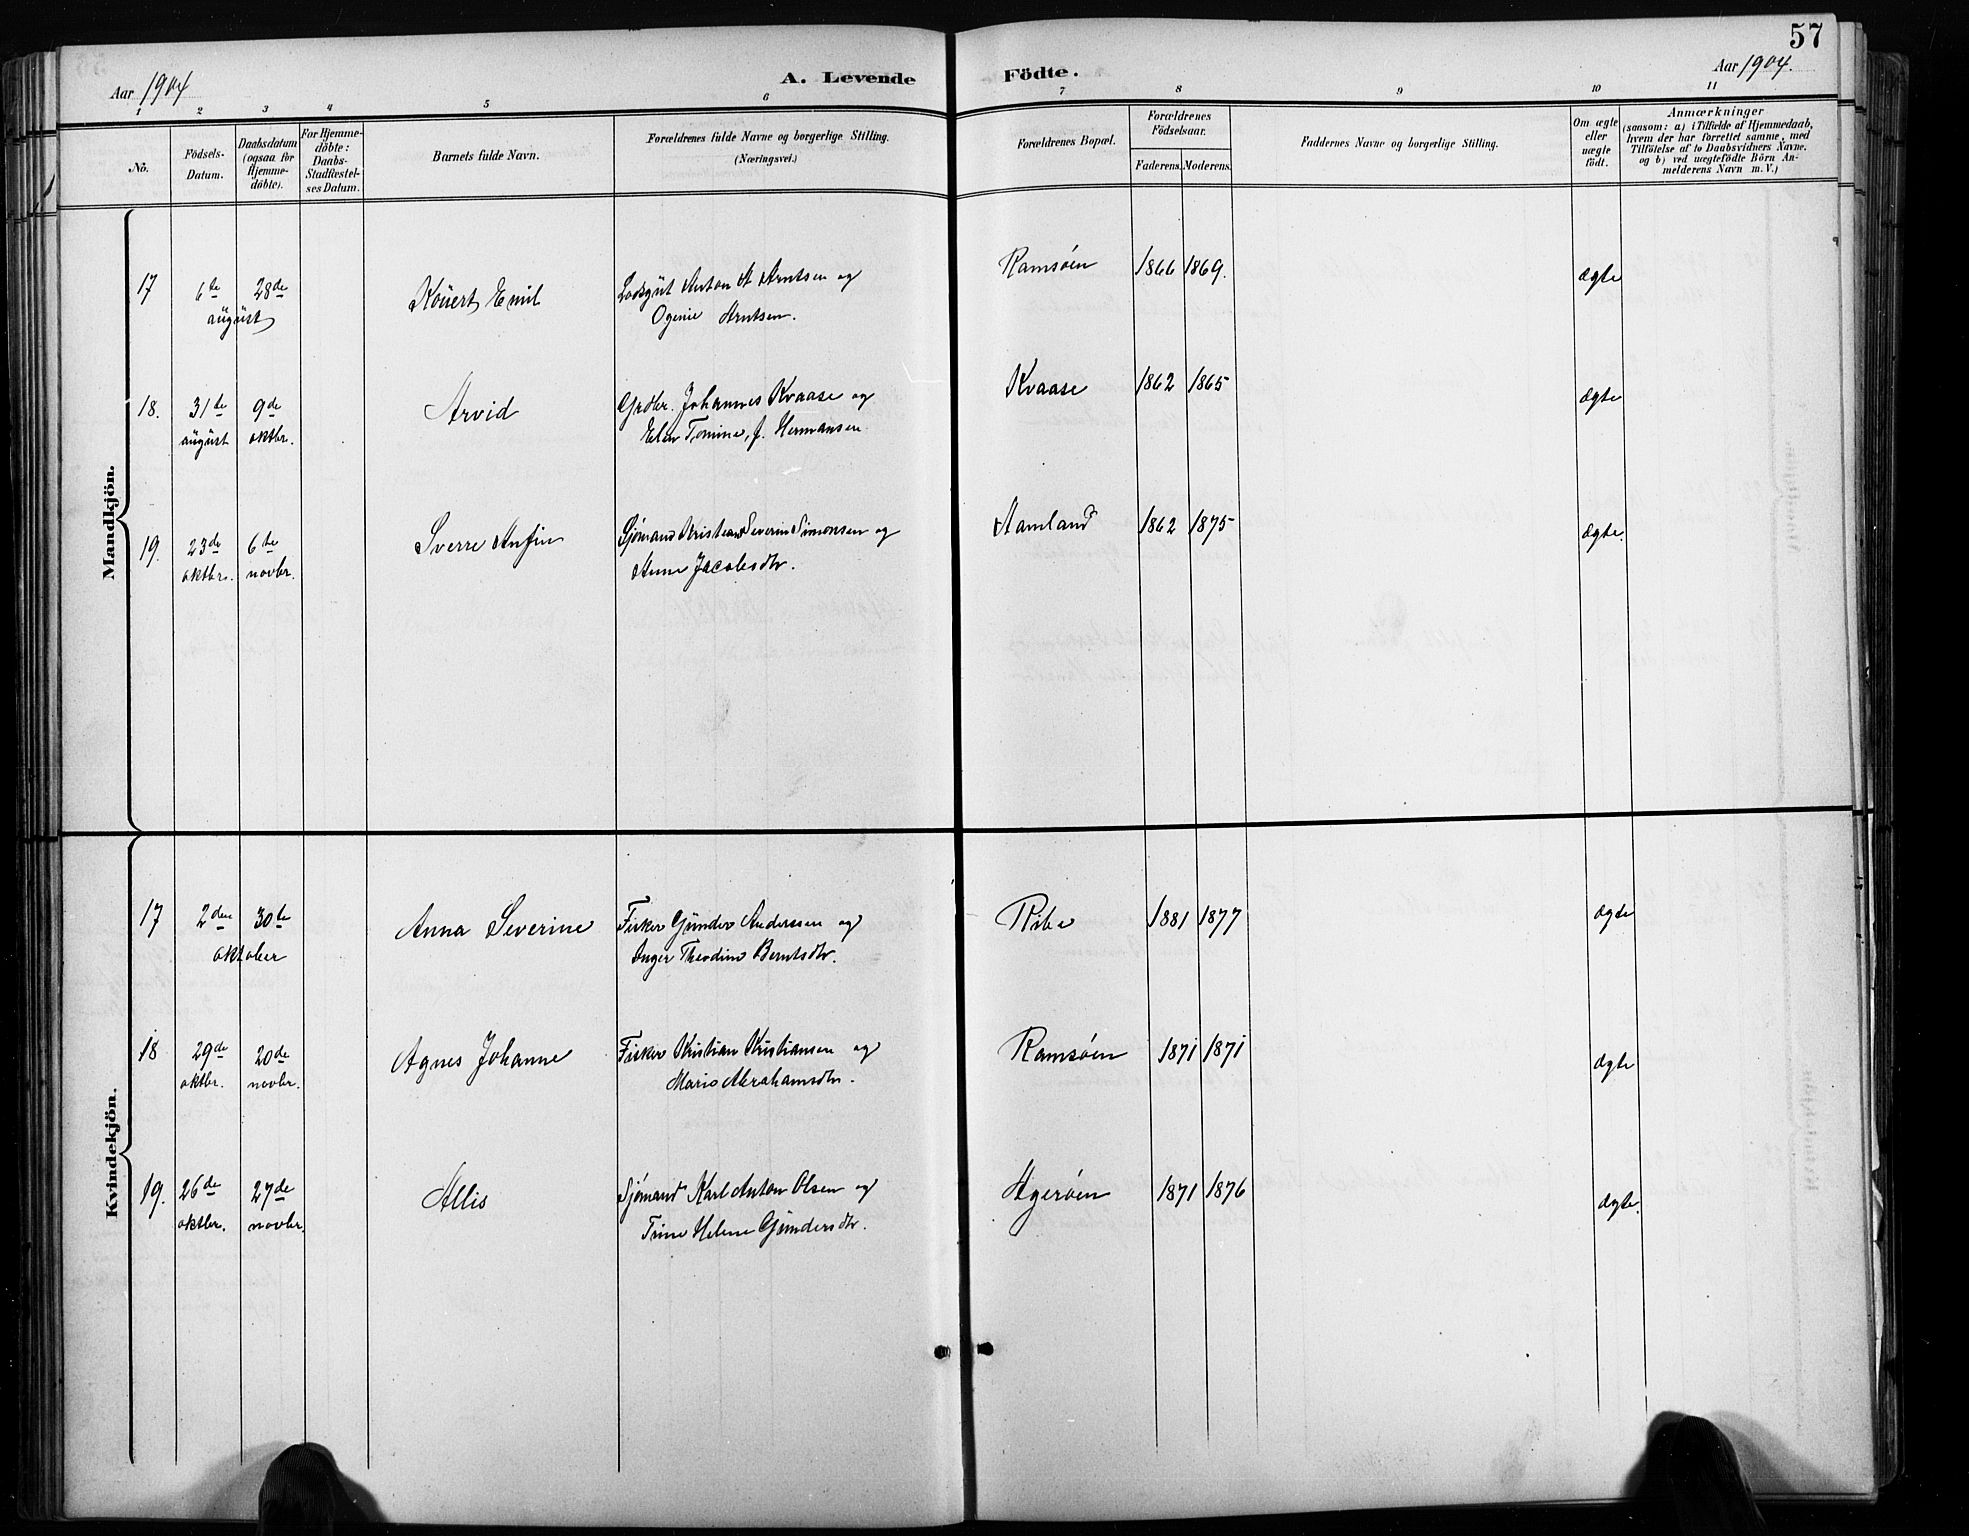 57
Aar 1904
A. Levende Födte.
Aar 1904.
1 2 3 4 5 6 7 8 9 10 11
No.
Födsels-
Datum.
Daabsdatum
(ogsaa for
Hjemme-
döbte).
For Hjemme-
döbte:
Daabs-
Stadfæstel-
ses Datum.
Barnets fulde Navn.
Forældrenes fulde Navne og borgerlige Stilling.
(Næringsvei.)
Forældrenes Bopæl.
Forældrenes
Födselsaar.
Faderens. Moderens.
Faddernes Navne og borgerlige Stilling.
Om ægte
eller
uægte
födt.
Anmærkninger
(saasom: a) i Tilfælde af Hjemmedaab,
hvem der har forrettet samme, med
Tilföielse af to Daabsvidners Navne.
og b) ved uægtefödte Börn An-
melderens Navn m. V.)
Mandkjön.
17 6te 28de Emil Anton A Arntsen og Ramsöen 1866 1869. ægte
august Arntsen.
18. 31te 9de Arvid Grdbr. Johannes Kvaase og Kvaase 1862 1865 ægte
august oktbr. Elen Tomine, f. Hermansen
19. 23de 6te Sverre Anfin Sjömand Kristian Severin Simonsen og Aamland 1862 1875 ægte.
oktbr. novbr. Anne Jacobsdtr.
Kvindekjön.
17 2den 30te Anna Severine Fisker Gunder Anderssen og Ribe 1881 1877 ægte
oktober Inger Theodine Berntsdtr.
18 29de 20de Agnes Johanne Fisker Kristian Kristiansen og Ramsöen 1871 1871 ægte
oktbr. novbr. Marie Abrahamsdtr.
19. 26de 27de Allis Sjömand Karl Anton Olsen og Ågeröen 1871 1876 ægte.
oktbr. novbr. Trine Helene Gundersdtr.